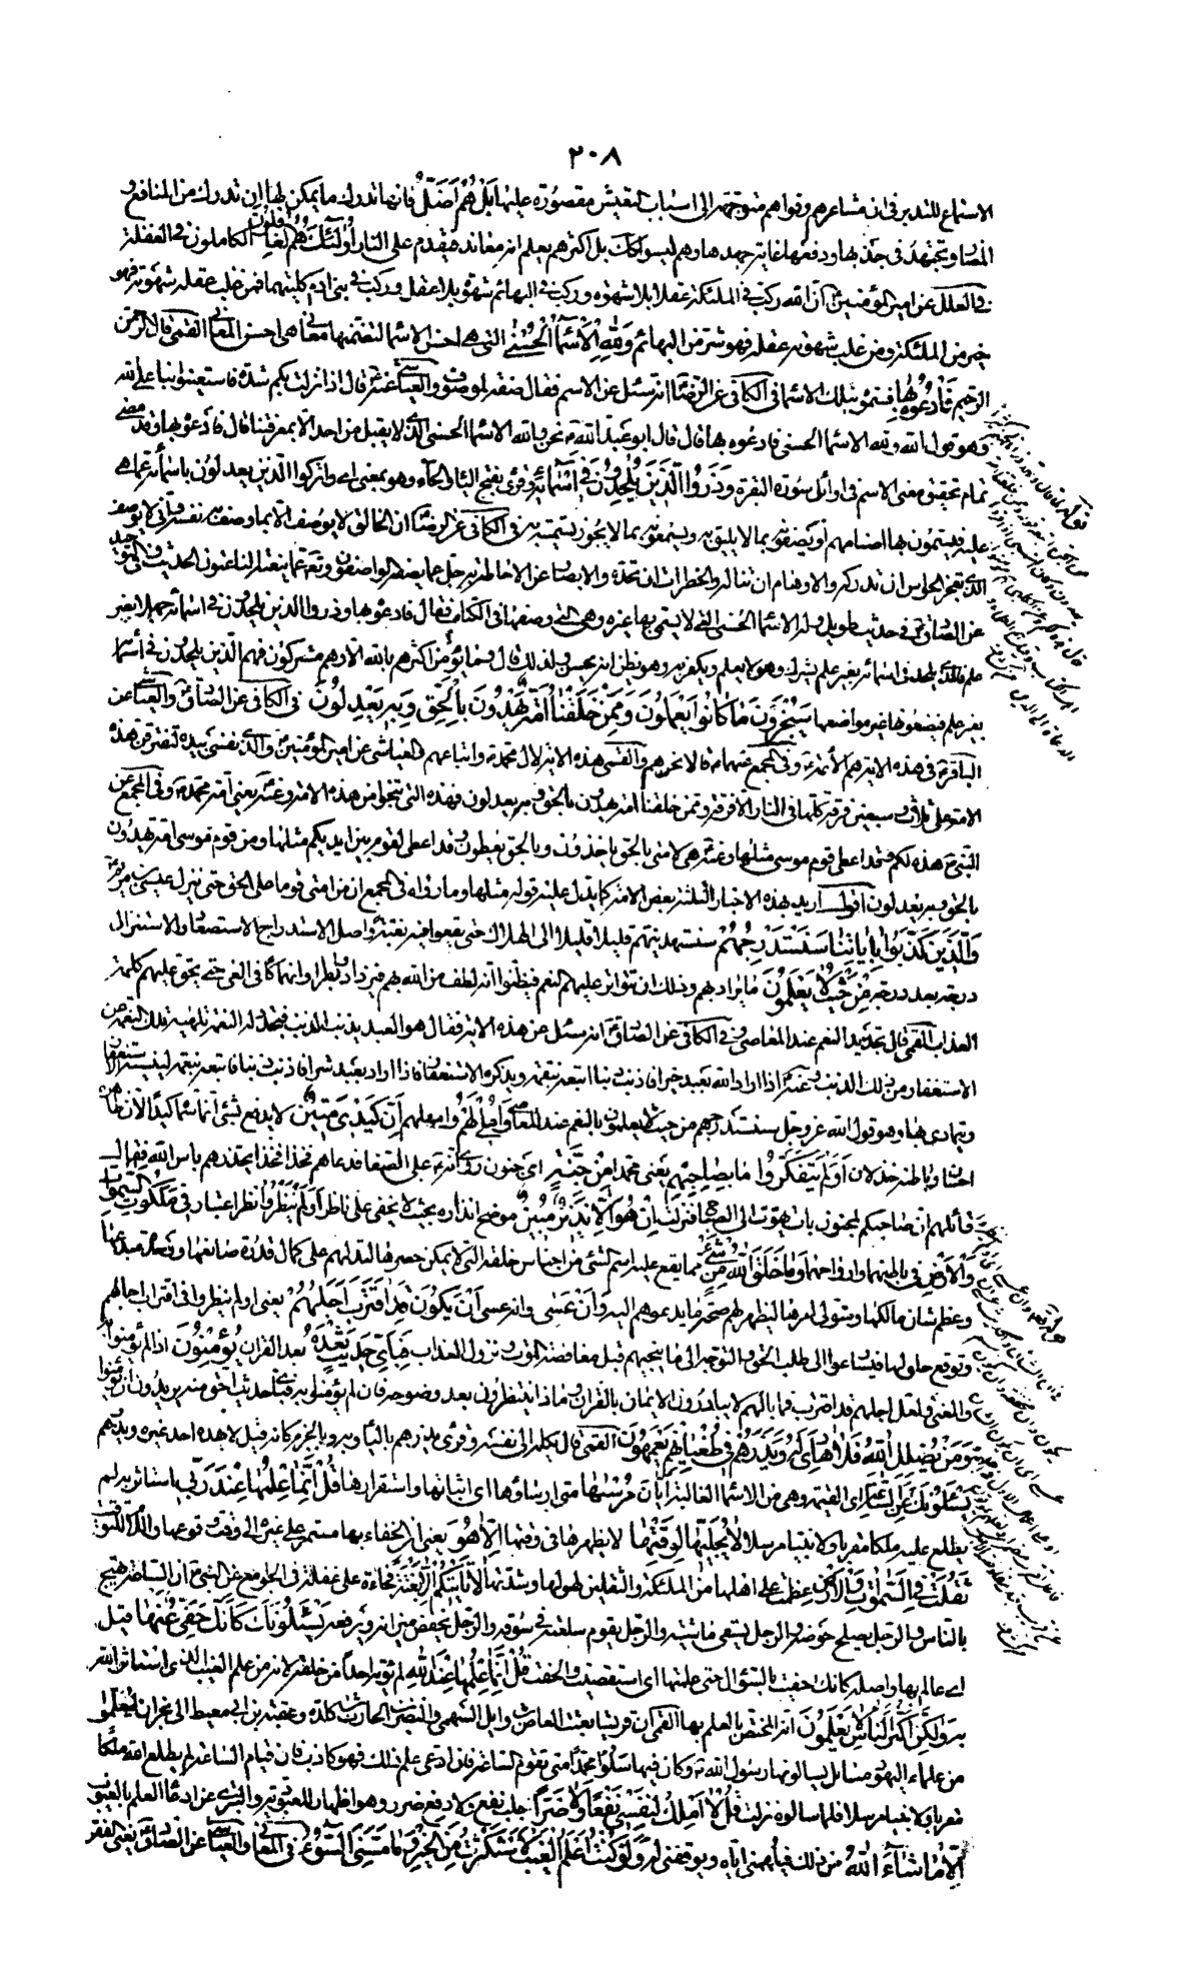 ٢٠٨
الاستماع للتدبر في ان مشاعرهم وقواهم متوجهة الى اسباب التعيش مقصورة عليها بَلْ هُمْ اَضَلُّ فانها تدرك ما يمكن لها ان تدرك من المنافع و
المضار وتجتهد في جذبها ودفعها غاية جهدها وهم ليسوا كذلك بل اكثرهم يعلم انه معاند فيقدم على النار اُولٰئِكَ هُمُ الْغافِلُونَ الكاملون في الغفلة
في العلل عن امير المؤمنين ان الله ركب في الملئكة عقلا بلا شهوة وركب في البهائم شهوة بلا عقل وركب في بني ادم كلتيهما فمن غلب عقله شهوته فهو
خير من الملئكة ومن غلب شهوته عقله فهو شر من البهائم وَلِلّٰهِ الْاَسْمآءُ الْحُسْنىٰ التي هي احسن الاسماء لتضمنها معاني هي احسن المعاني القمي قال الرحمن
الرحيم فَادْعُوهُ بِها فسموه بتلك الاسماء في الكافي عن الرضا انه سئل عن الاسم فقال صفة لموصوف والعياشي عنه قال اذا نزلت بكم شدة فاستعينوا بنا على الله
وهو قول الله ولله الاسماء الحسنى فادعوه بها قال قال ابو عبد الله نحن والله الاسماء الحسنى الذي لا يقبل من احد الا بمعرفتنا قال فادعوه بها وقد مضى
تمام تحقيق معنى الاسم في اوائل سورة البقرة وَذَرُوا الَّذِينَ يُلْحِدُونَ في اَسْمآئِهِ وقرئ بفتح الياء والحاء وهو بمعناه اي واتركوا الذين يعدلون باسمائه عما هي
عليه فيسمون بها اصنامهم او يصفونه بما لا يليق به ويسمونه بما لا يجوز تسميته به في الكافي عن الرضا ان الخالق لا يوصف الا بما وصف به نفسه وانى يوصف
الذي تعجز الحواس ان تدركه والاوهام ان تناله والخطرات ان تحده والابصار عن الاحاطة به جل عما يصفه الواصفون وتعالى عما ينعته الناعتون الحديث وفي التوحيد
عن الصادق في حديث طويل وله الاسماء الحسنى التي لا يسمى بها غيره وهي التي وصفها في الكتاب فقال فادعوه بها وذروا الذين يلحدون في اسمائه جهلا بغير
علم فالذي يلحد في اسمائه بغير علم يشرك وهو لا يعلم ويكفر به وهو يظن انه يحسن ولذلك قال وما يؤمن اكثرهم بالله الا وهم مشركون فهم الذين يلحدون في اسمائه
بغير علم فيضعونها غير مواضعها سَيُجْزَوْنَ ما كانُوا يَعْمَلُونَ وَمِمَّنْ خَلَقْنا اُمَّةٌ يَهْدُونَ بِالْحَقِّ وَبِهِ يَعْدِلُونَ في الكافي عن الصادق والعياشي عن
الباقر في هذه الاية هم الائمة وفي المجمع عنهما قالا نحن هم والقمي هذه الاية لآل محمد واتباعهم العياشي عن امير المؤمنين والذي نفسي بيده لتفترقن هذه
الامة على ثلاث وسبعين فرقة كلها في النار الا فرقة وممن خلقنا امة يهدون بالحق وبه يعدلون فهذه التي تنجو من هذه الامة وعنه يعني امة محمد وفي المجمع عن
النبي هذه لكم وقد اعطي قوم موسى مثلها وعنه هي لامتي بالحق ياخذون وبالحق يعطون وقد اعطي لقوم بين ايديكم مثلها ومن قوم موسى امة يهدون
بالحق وبه يعدلون اقول اريد بهذه الاخبار الثلثة بعض الامة كما يدل عليه قوله مثلها وما رواه في المجمع ان من امتي قوما على الحق حتى ينزل عيسى بن مريم
وَالَّذِينَ كَذَّبُوا بِاٰياتِنا سَنَسْتَدْرِجُهُمْ سنستدنيهم قليلا قليلا الى الهلاك حتى يقعوا فيه بغتة واصل الاستدراج الاستصعاد والاستنزال
درجة بعد درجة مِنْ حَيْثُ لا يَعْلَمُونَ ما يراد بهم وذلك ان تتواتر عليهم النعم فيظنوا انه لطف من الله بهم فيزدادوا بطرا وانهماكا في الغي حتى يحق عليهم كلمة
العذاب القمي قال تجديد النعم عند المعاصي وفي الكافي عن الصادق انه سئل عن هذه الاية فقال هو العبد يذنب الذنب فيجدد له النعمة تلهيه تلك النعمة عن
الاستغفار من ذلك الذنب وعنه اذا اراد الله بعبد خيرا فاذنب ذنبا اتبعه بنقمة ويذكره الاستغفار فاذا اراد بعبد شرا فاذنب ذنبا اتبعه بنعمة لينسيه الاستغفار
ويتمادى بها وهو قول الله عز وجل سنستدرجهم من حيث لا يعلمون بالنعم عند المعاصي وَاُمْلِي لَهُمْ وامهلهم اِنَّ كَيْدِي مَتِينٌ لا يدفع بشيء انما سماه كيدا لان ظاهره
احسان وباطنه خذلان اَوَلَمْ يَتَفَكَّرُوا ما بِصاحِبِهِمْ يعني محمدا مِنْ جِنَّةٍ اي جنون روي انه على الصفا فدعاهم فخذا فخذا يحذرهم باس الله فقال
قائلهم ان صاحبكم لمجنون بات يهوت الى الصباح فنزلت اِنْ هُوَ اِلّا نَذِيرٌ مُبِينٌ موضح انذاره بحيث لا يخفى على ناظر اَوَلَمْ يَنْظُرُوا نظر اعتبار في مَلَكُوتِ السَّمٰواتِ
وَالْاَرْضِ في باطنهما وارواحهما وَما خَلَقَ اللّٰهُ مِنْ شَيْءٍ مما يقع عليه اسم الشيء من اجناس خلقه التي لا يمكن حصرها لتدلهم على كمال قدرة صانعها ووحدة مبدعها
وعظم شان مالكها ومتولي امرها ليظهر لهم صحة ما يدعوهم اليه وَاَنْ عَسىٰ وانه عسى اَنْ يَكُونَ قَدِ اقْتَرَبَ اَجَلُهُمْ يعني اولم ينظروا في اقتراب اجالهم
وتوقع حلولها فيسارعوا الى طلب الحق والتوجه الى ما ينجيهم قبل مغافصة الموت ونزول العذاب فَبِاَيِّ حَدِيثٍ بَعْدَهُ بعد القران يُؤْمِنُونَ اذا لم يؤمنوا به
والمعنى ولعل اجلهم قد اقترب فما بالهم لا يبادرون الايمان بالقران وماذا ينتظرون بعد وضوحه فان لم يؤمنوا به فباي حديث احق منه يريدون ان يؤمنوا
به مَنْ يُضْلِلِ اللّٰهُ فَلا هادِيَ لَهُ وَيَذَرُهُمْ في طُغْيانِهِمْ يَعْمَهُونَ القمي قال يكله الى نفسه وقرئ ويذرهم بالياء وبه وبالجزم كانه قيل لا يهده احد غيره ويذرهم
يَسْئَلُونَكَ عَنِ السّاعَةِ اي القيمة وهي من الاسماء الغالبة اَيّانَ مُرْسٰها متى ارساؤها اي اثباتها واستقرارها قُلْ اِنَّما عِلْمُها عِنْدَ رَبِّي استاثر به لم
يطلع عليه ملكا مقربا ولا نبيا مرسلا لا يُجَلِّيها لِوَقْتِها لا يظهرها في وقتها اِلّا هُوَ يعني ان الخفاء بها مستمر على غيره الى وقت وقوعها واللام للتوقيت
ثَقُلَتْ في السَّمٰواتِ وَالْاَرْضِ عظمت على اهلها من الملئكة والثقلين لهولها وشدتها لا تَأْتِيكُمْ اِلّا بَغْتَةً فجاءة على غفلة في الجوامع عن النبي ان الساعة تهيج
بالناس والرجل يصلح حوضه والرجل يسقي ماشيته والرجل يقوم سلعته في سوقه والرجل يخفض ميزانه ويرفعه يَسْئَلُونَكَ كَاَنَّكَ حَفِيٌّ عَنْها قيل
اي عالم بها واصله كانك حفيت بالسؤال حتى علمتها اي استقصيت والحفت قُلْ اِنَّما عِلْمُها عِنْدَ اللّٰهِ لم يؤته احدا من خلقه لانه من علم الغيب الذي استاثر الله
به وَلٰكِنَّ اَكْثَرَ النّاسِ لا يَعْلَمُونَ انه المختص بالعلم بها القمي ان قريشا بعثت العاص بن وايل السهمي والنضر بن الحارث بن كلدة وعقبة بن ابي معيط الى نجران ليتعلموا
من علماء اليهود مسائل يسالونها رسول الله وكان فيها سلوا محمدا متى تقوم الساعة فان ادعى علم ذلك فهو كاذب فان قيام الساعة لم يطلع الله ملكا
مقربا ولا نبيا مرسلا فلما سالوه نزلت قُلْ لا اَمْلِكُ لِنَفْسِي نَفْعًا وَلا ضَرًّا جلب نفع ولا دفع ضرر وهو اظهار للعبودية والتبري عن ادعاء العلم بالغيوب
اِلّا ما شآءَ اللّٰهُ من ذلك فيلهمني اياه ويوفقني له وَلَوْ كُنْتُ اَعْلَمُ الْغَيْبَ لَاسْتَكْثَرْتُ مِنَ الْخَيْرِ وَما مَسَّنِيَ السُّوءُ في المعاني والعياشي عن الصادق يعني الفقر